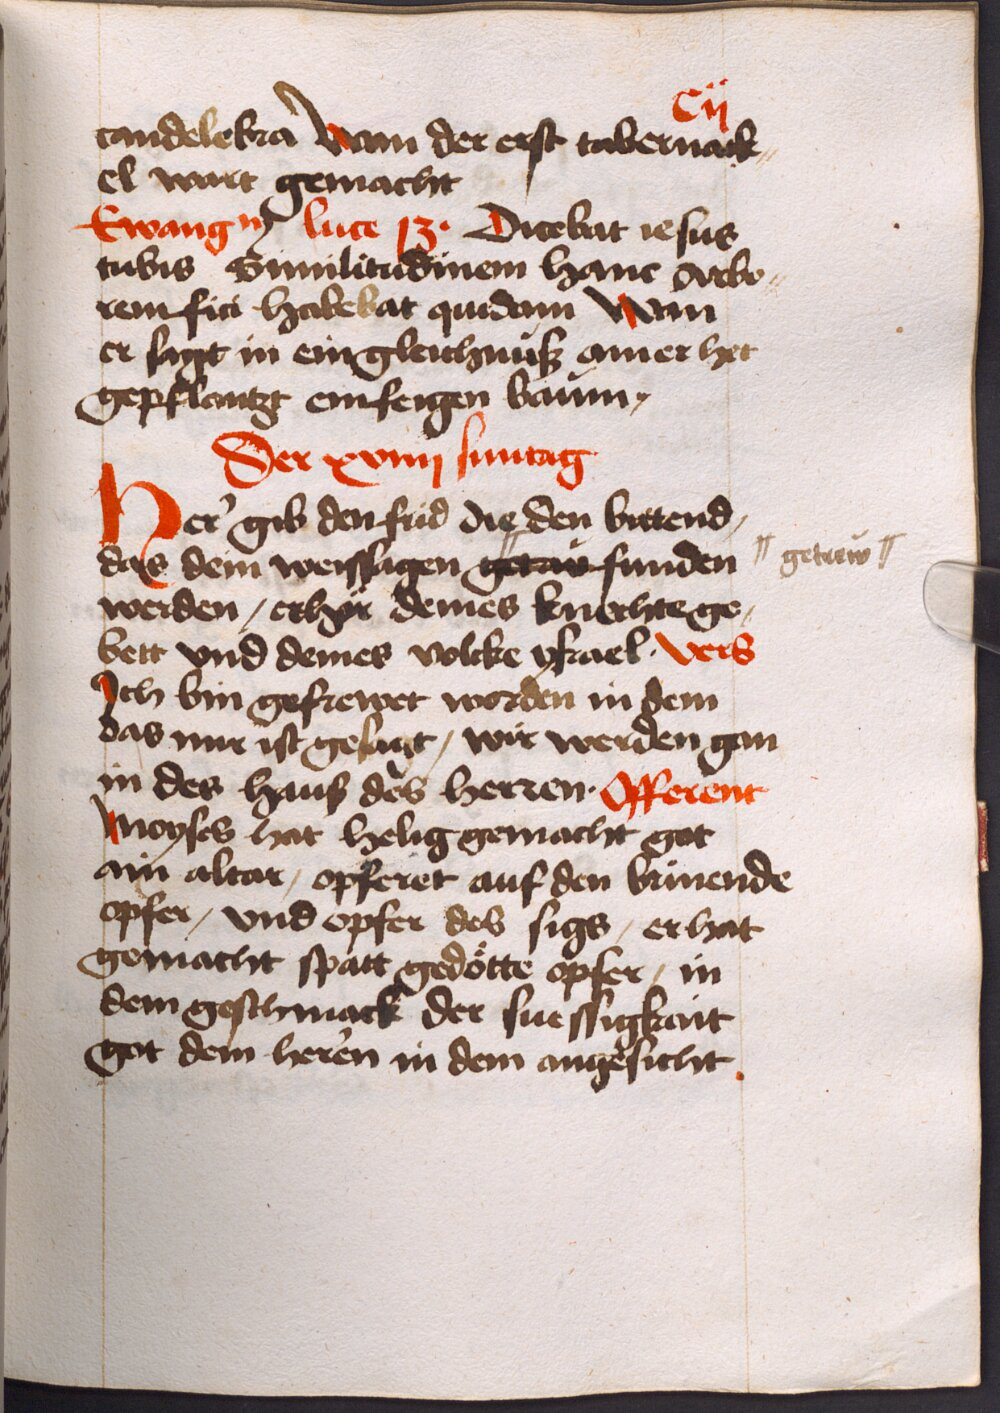 Cij
candelebra Wan der erst tabernack
el wart gemacht
Ewangm luce 13. Dicebat iesus
turbis Similitudinem hanc Arbo
rem fici habebat quidam Wan
er sagt in ein gleichnuß ainer het
gepflantzt ein feigen baum
Der xviiij suntag
Her gib den frid die den bittend,
das dein weissagen getrüw funden
"getrüw"
werden / erhör deines knechte ge,
bett vnd deines volcke ysrael. vers
Ich bin gefrewet worden in dem
das mir ist gesagt / wir werden gan
in des hauß des herren. Offerent
Moyses hat helig gemacht got
ain altar / opferet auf den brinende
opfer / vnd opfer des sigs / er hat
gemacht spatt gedötte opfer / in
dem geschmack der suessigkait
got dem heren in dem angesicht